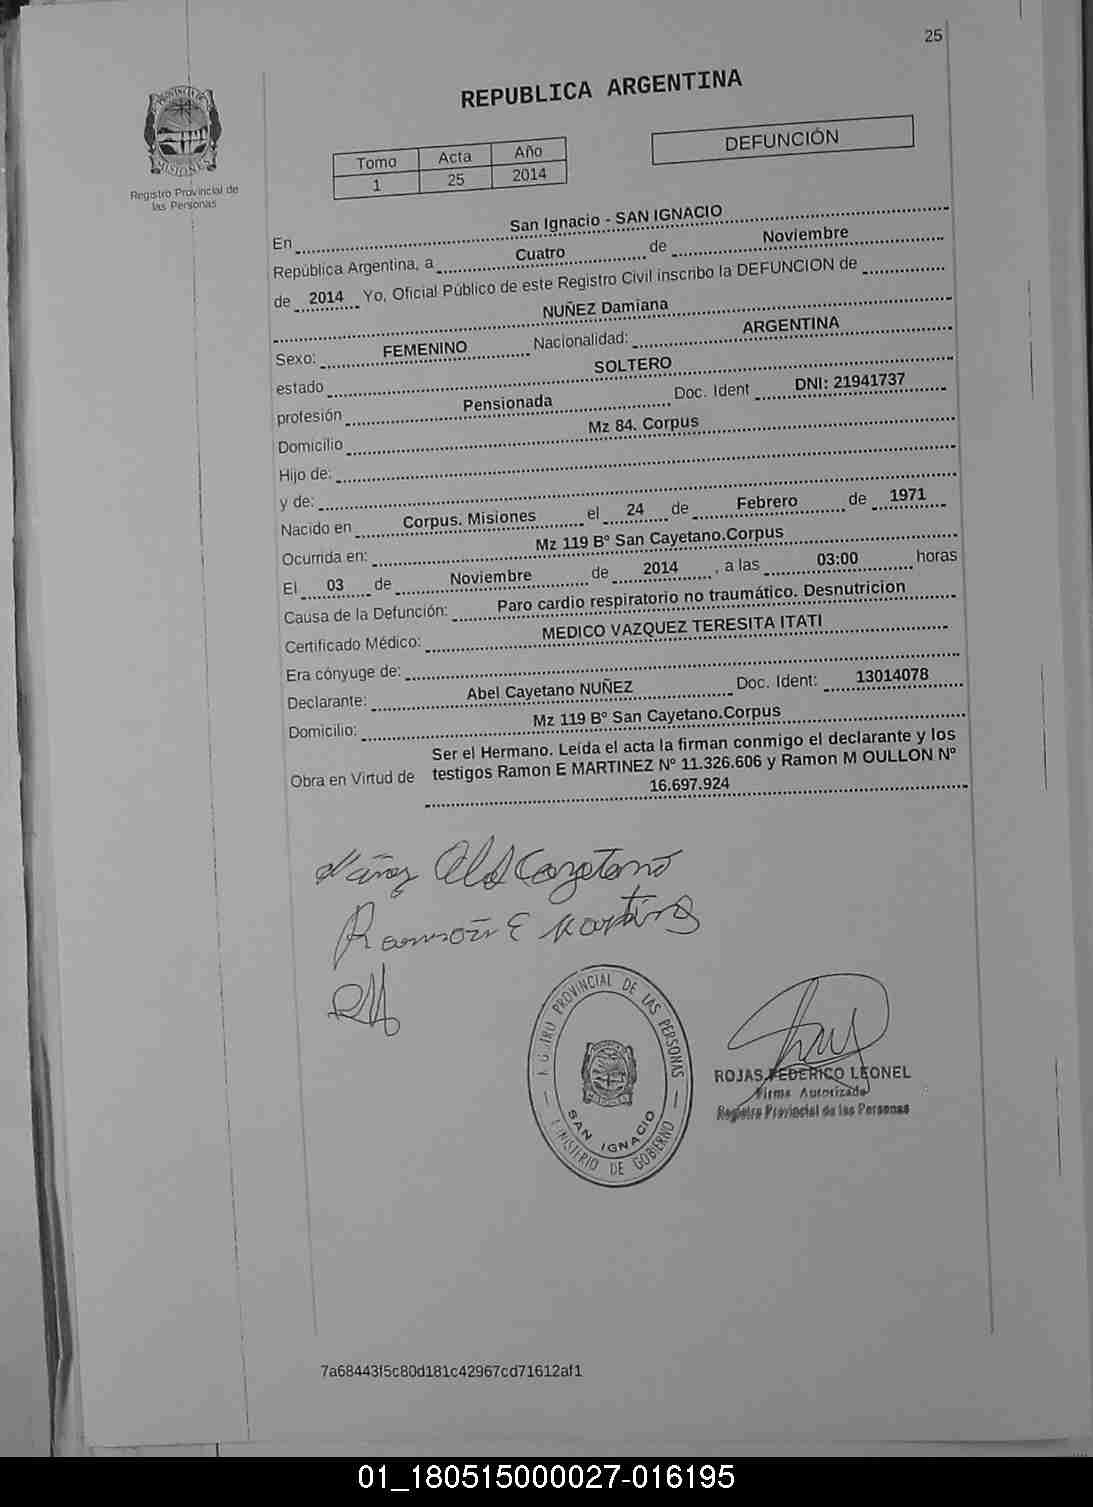 25
PROVINCIA DE
MISIONES
Registro Provincial de
las Personas
REPUBLICA ARGENTINA
Tomo Acta Año
1 25 2014
DEFUNCIÓN
En San Ignacio - SAN IGNACIO
República Argentina, a Cuatro de Noviembre
de 2014 Yo, Oficial Público de este Registro Civil inscribo la DEFUNCION de
NUÑEZ Damiana
Sexo: FEMENINO Nacionalidad: ARGENTINA
estado SOLTERO
profesión Pensionada Doc. Ident DNI: 21941737
Domicilio Mz 84. Corpus
Hijo de:
y de:
Nacido en Corpus. Misiones el 24 de Febrero de 1971
Ocurrida en: Mz 119 Bº San Cayetano.Corpus
El 03 de Noviembre de 2014, a las 03:00 horas
Causa de la Defunción: Paro cardio respiratorio no traumático. Desnutricion
Certificado Médico: MEDICO VAZQUEZ TERESITA ITATI
Era cónyuge de:
Declarante: Abel Cayetano NUÑEZ Doc. Ident: 13014078
Domicilio: Mz 119 Bº San Cayetano.Corpus
Obra en Virtud de Ser el Hermano. Leída el acta la firman conmigo el declarante y los
testigos Ramon E MARTINEZ Nº 11.326.606 y Ramon M OULLON Nº
16.697.924
Cayetano
Ramón E
PROVINCIAL DE LAS PERSONAS
SAN IGNACIO
MINISTERIO DE GOBIERNO
ROJAS FEDERICO LEONEL
Firma Autorizada
Registro Provincial de las Personas
7a68443f5c80d181c42967cd71612af1
01_180515000027-016195